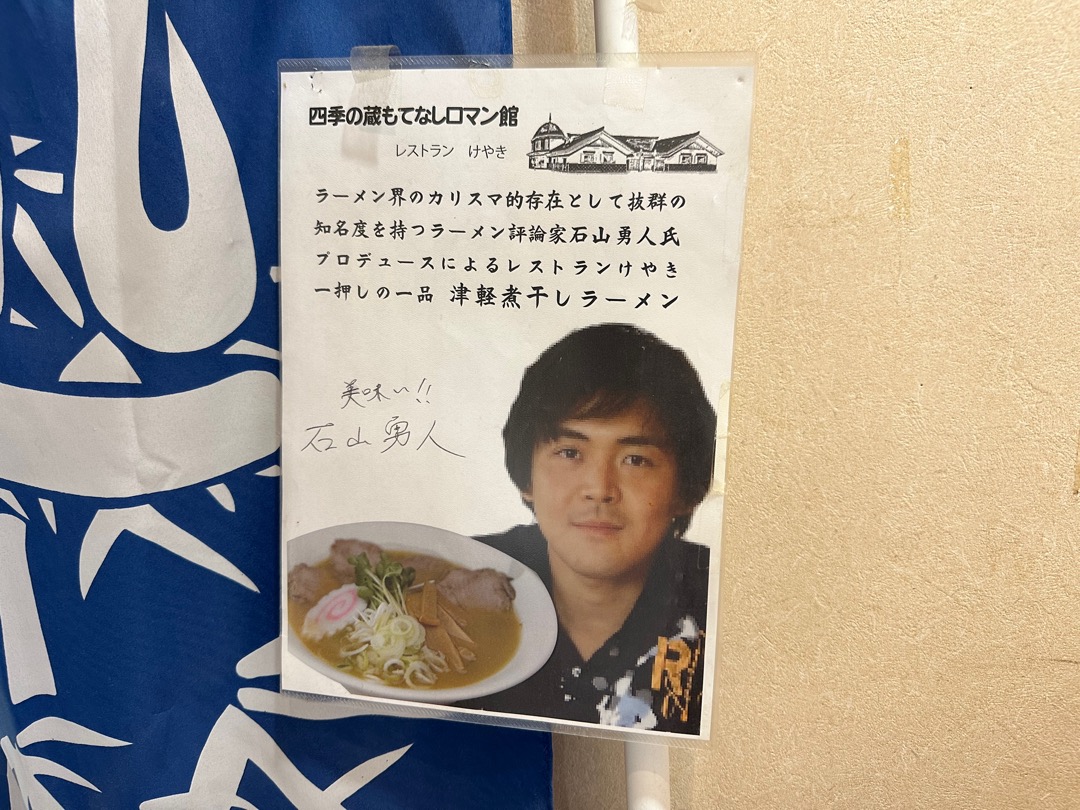 四季の蔵もてなしロマン館
レストラン けやき
ラーメン界のカリスマ的存在として抜群の
知名度を持つラーメン評論家石山勇人氏
プロデュースによるレストランけやき
一押しの一品 津軽煮干しラーメン
美味い!!
石山勇人